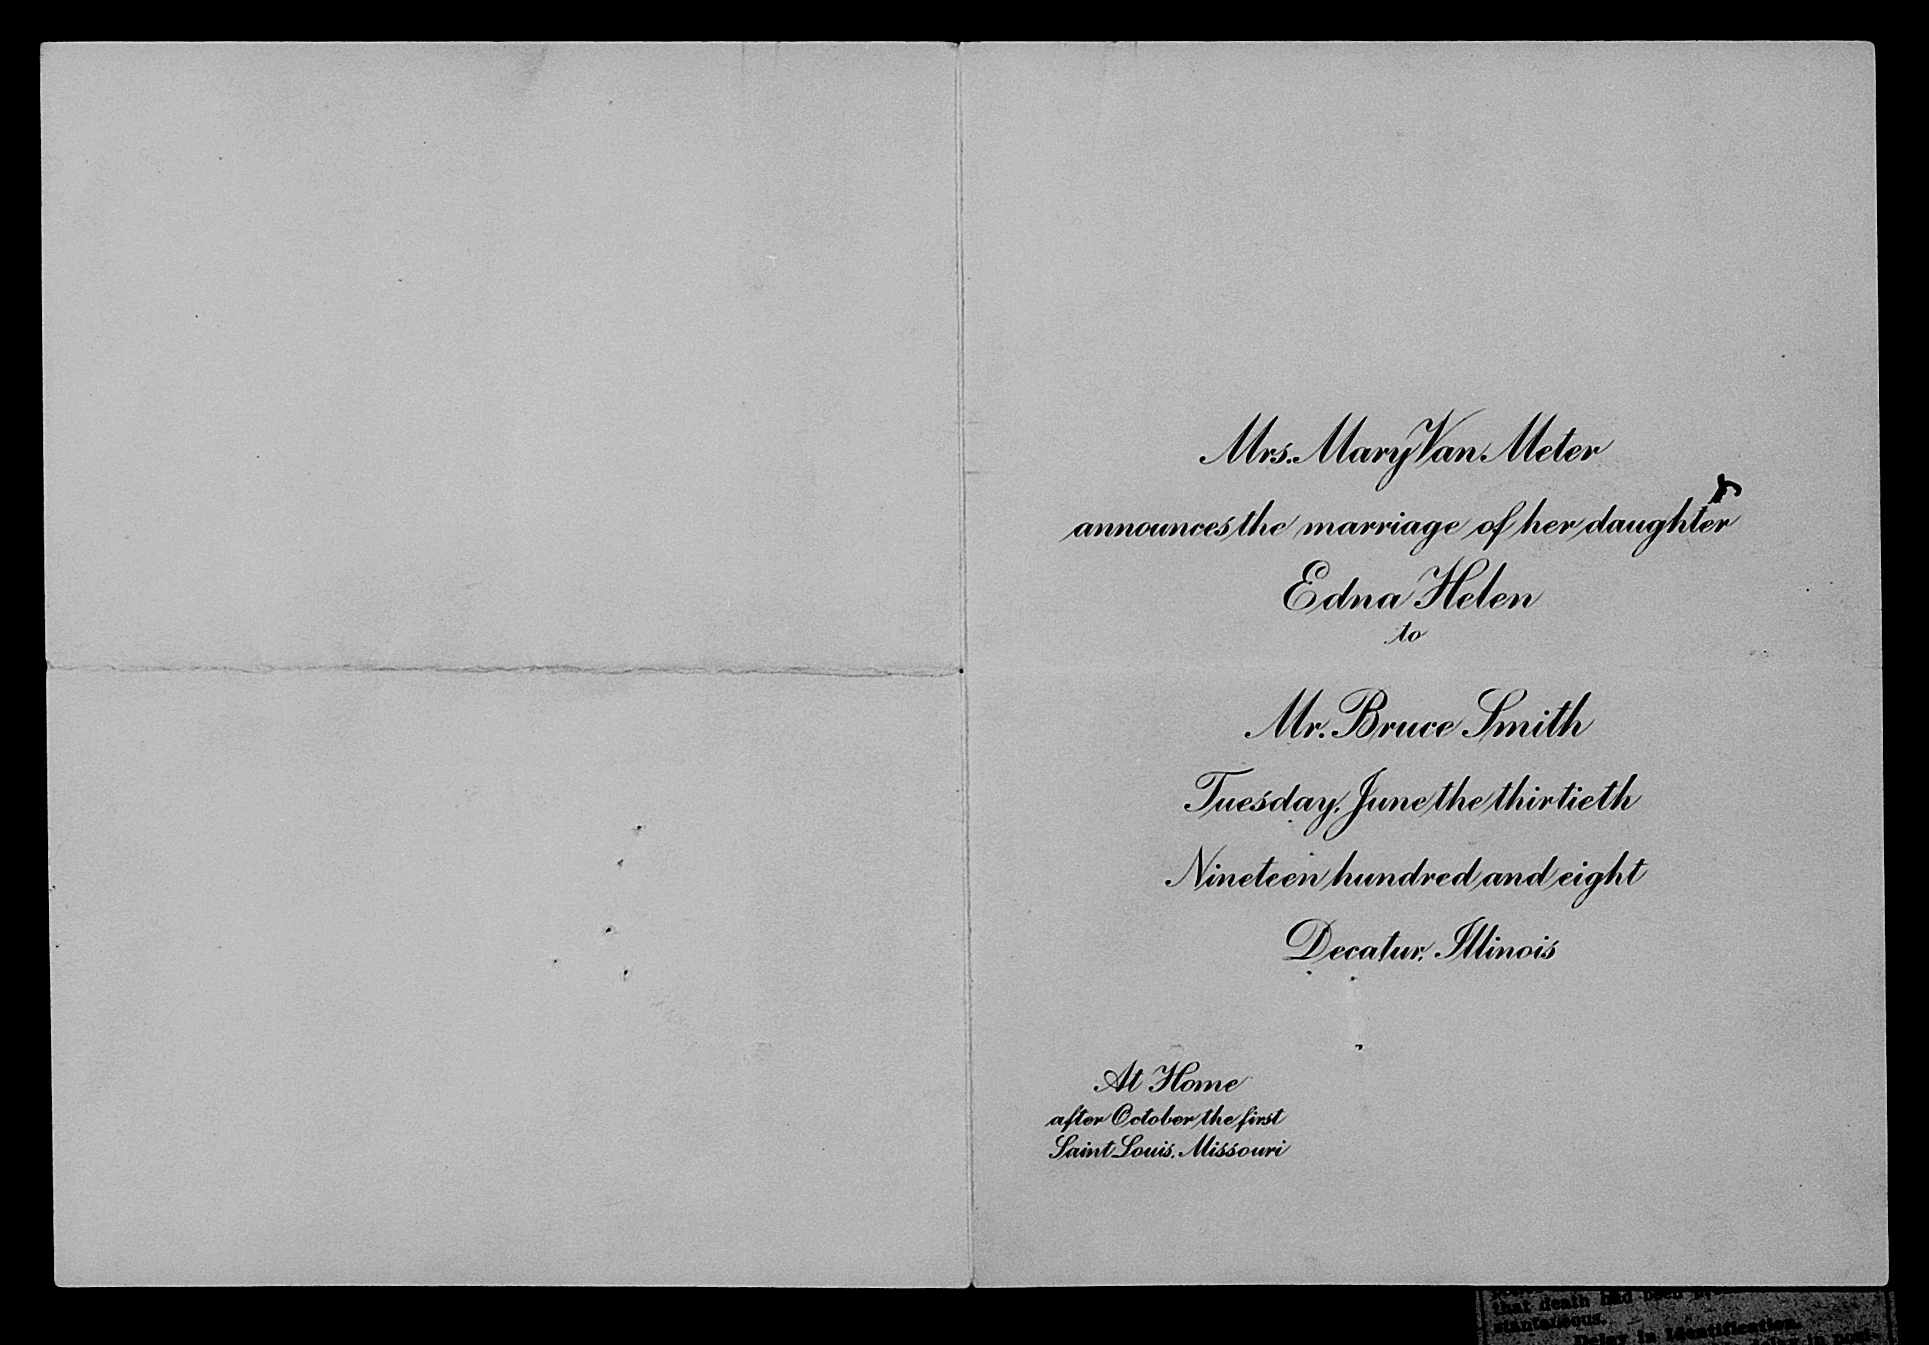 Mrs. Mary Van Meter
announces the marriage of her daughter
Edna Helen
to
Mr. Bruce Smith
Tuesday, June the thirtieth
Nineteen hundred and eight
Decatur, Illinois
At Home
after October the first
Saint Louis, Missouri
that death had been
stantaneous.
Delay in Identification.